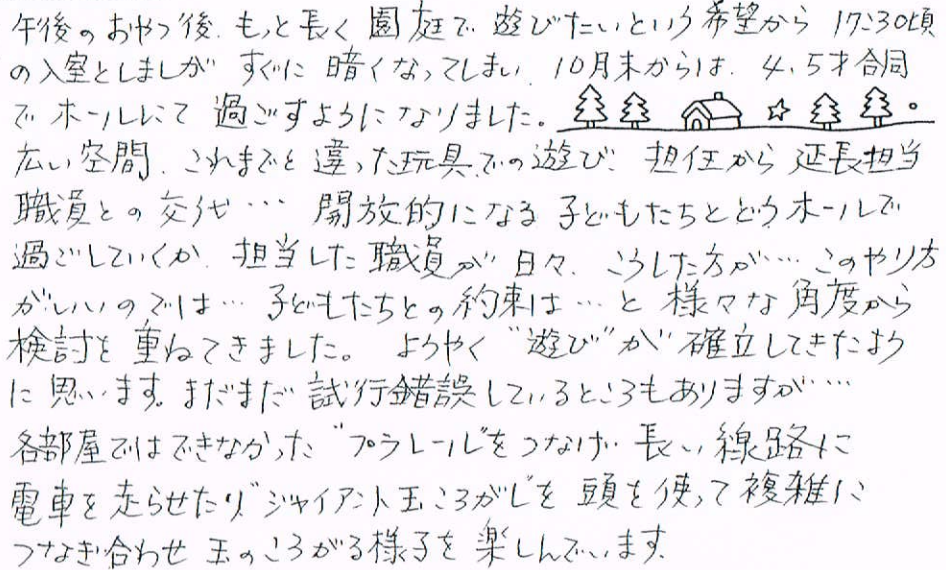 午後のおやつ後、もっと長く園庭で遊びたいという希望から17:30頃
の入室としましが すぐに暗くなってしまい、10月末からは、4、5才合同
でホールにて過ごすようになりました。
広い空間、これまでと違った玩具での遊び、担任から延長担当
職員との交代… 開放的になる子どもたちとどうホールで
過ごしていくか、担当した職員が日々、こうした方が…このやり方
がいいのでは… 子どもたちとの約束は…と様々な角度から
検討を重ねてきました。ようやく“遊び”が確立してきたよう
に思います。まだまだ試行錯誤しているところもありますが……
各部屋ではできなかった“プラレール”をつなげ長い線路に
電車を走らせたり“ジャイアント玉ころがし”を頭を使って複雑に
つなぎ合わせ玉のころがる様子を楽しんでいます。